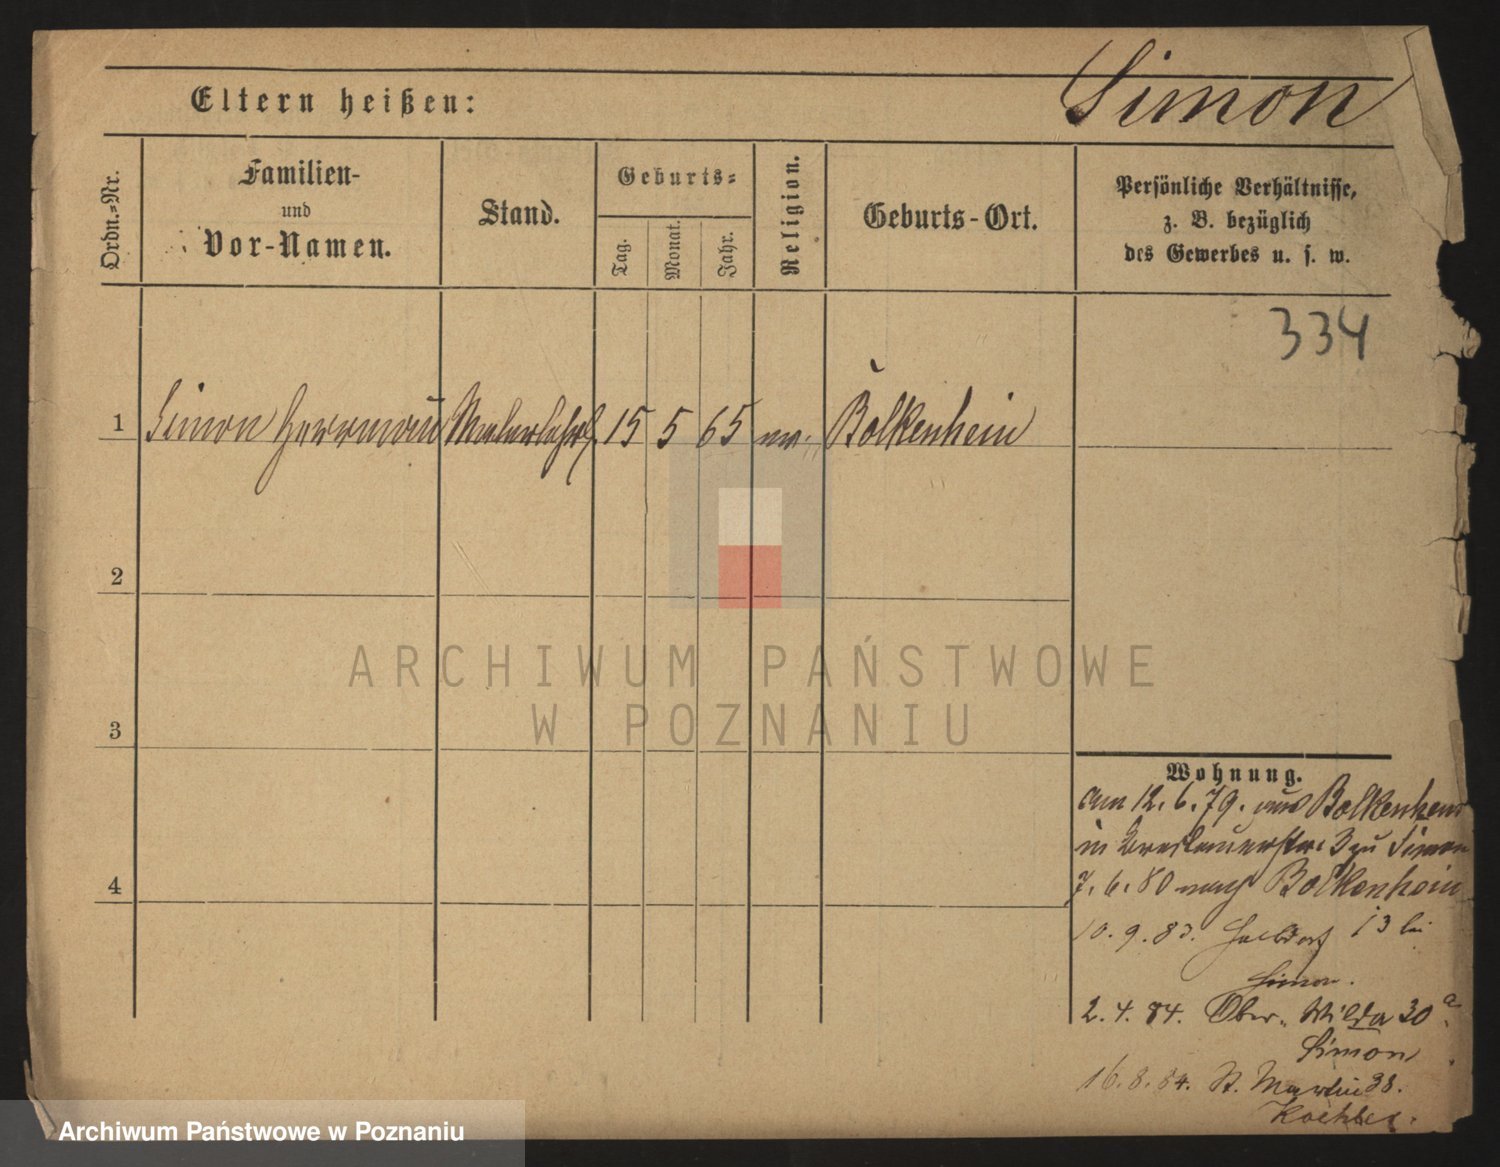 Simon
Eltern heißen:
Ordn.-Nr.
Familien-
und
Vor-Namen.
Stand.
Geburts-
Tag.
Monat.
Jahr.
Religion.
Geburts-Ort.
Persönliche Verhältnisse,
z. B. bezüglich
des Gewerbes u. s. w.
334
1 Simon Herrmann Malerlehrl. 15 5 65 Bolkenhein
2
3
4
ARCHIWUM PAŃSTWOWE
W POZNANIU
Wohnung.
am 12. 6. 79. aus Bolkenhein
in Breslauerstr. 3 zu Simon
7. 6. 80 nach Bolkenhein
10. 9. 83. Halbdorf 13 bei
Simon.
2. 4. 84. Ober-Wilda 30a
Simon
16. 8. 84. St. Martin 38.
Archiwum Państwowe w Poznaniu